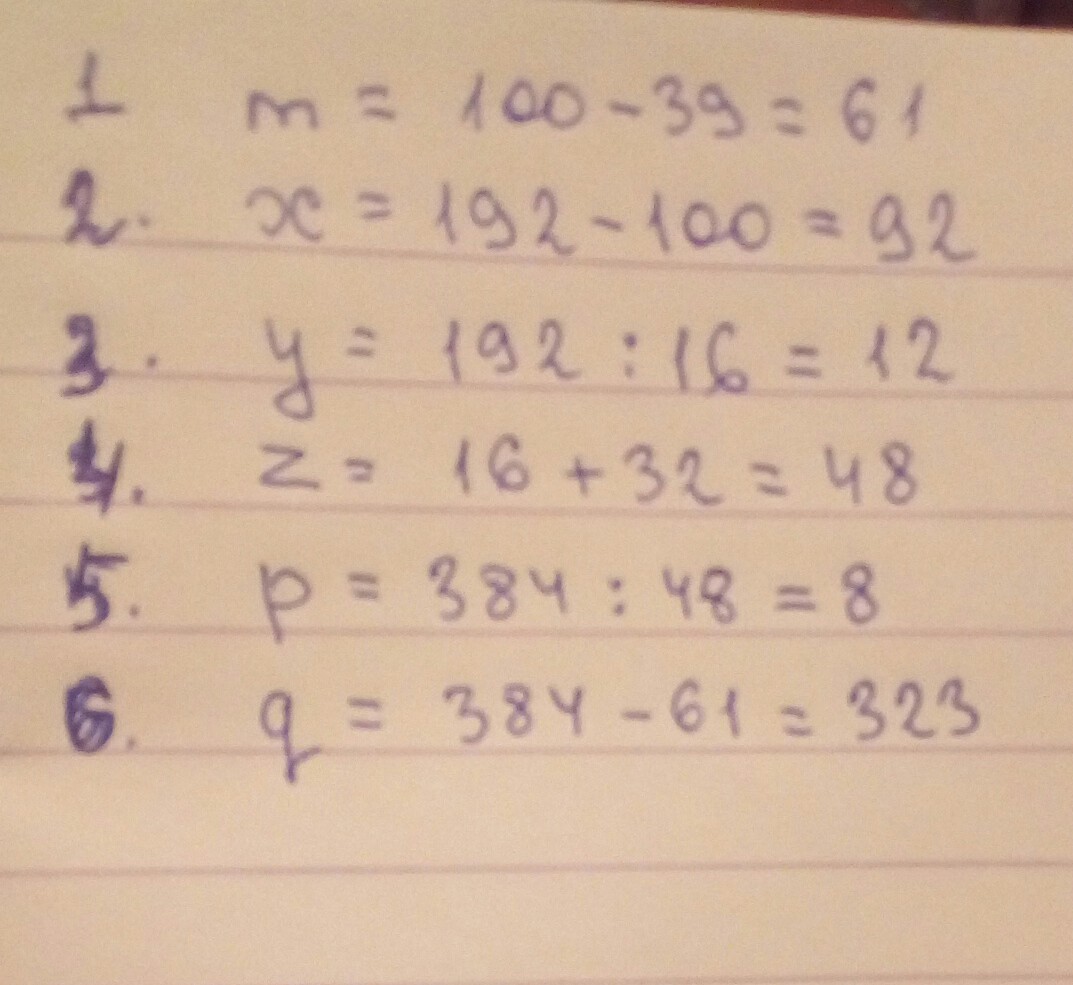 1 m = 100 - 39 = 61
2. x = 192 - 100 = 92
3. y = 192 : 16 = 12
4. z = 16 + 32 = 48
5. p = 384 : 48 = 8
6. q = 384 - 61 = 323